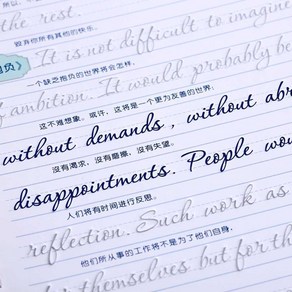 the rest.
毅弃你所有其他的快乐。
负》
It is not difficult to imagine
一个缺乏抱负的世界将会怎样。
of ambition. It would probably be
这不难想象。或许，这将是一个更为友善的世界。
without demands, without abr
没有渴求，没有磨擦，没有失望。
disappointments. People wou
人们将有时间进行反思。
reflection. Such work as
他们所从事的工作将不是为了他们自身，
for themselves but for th